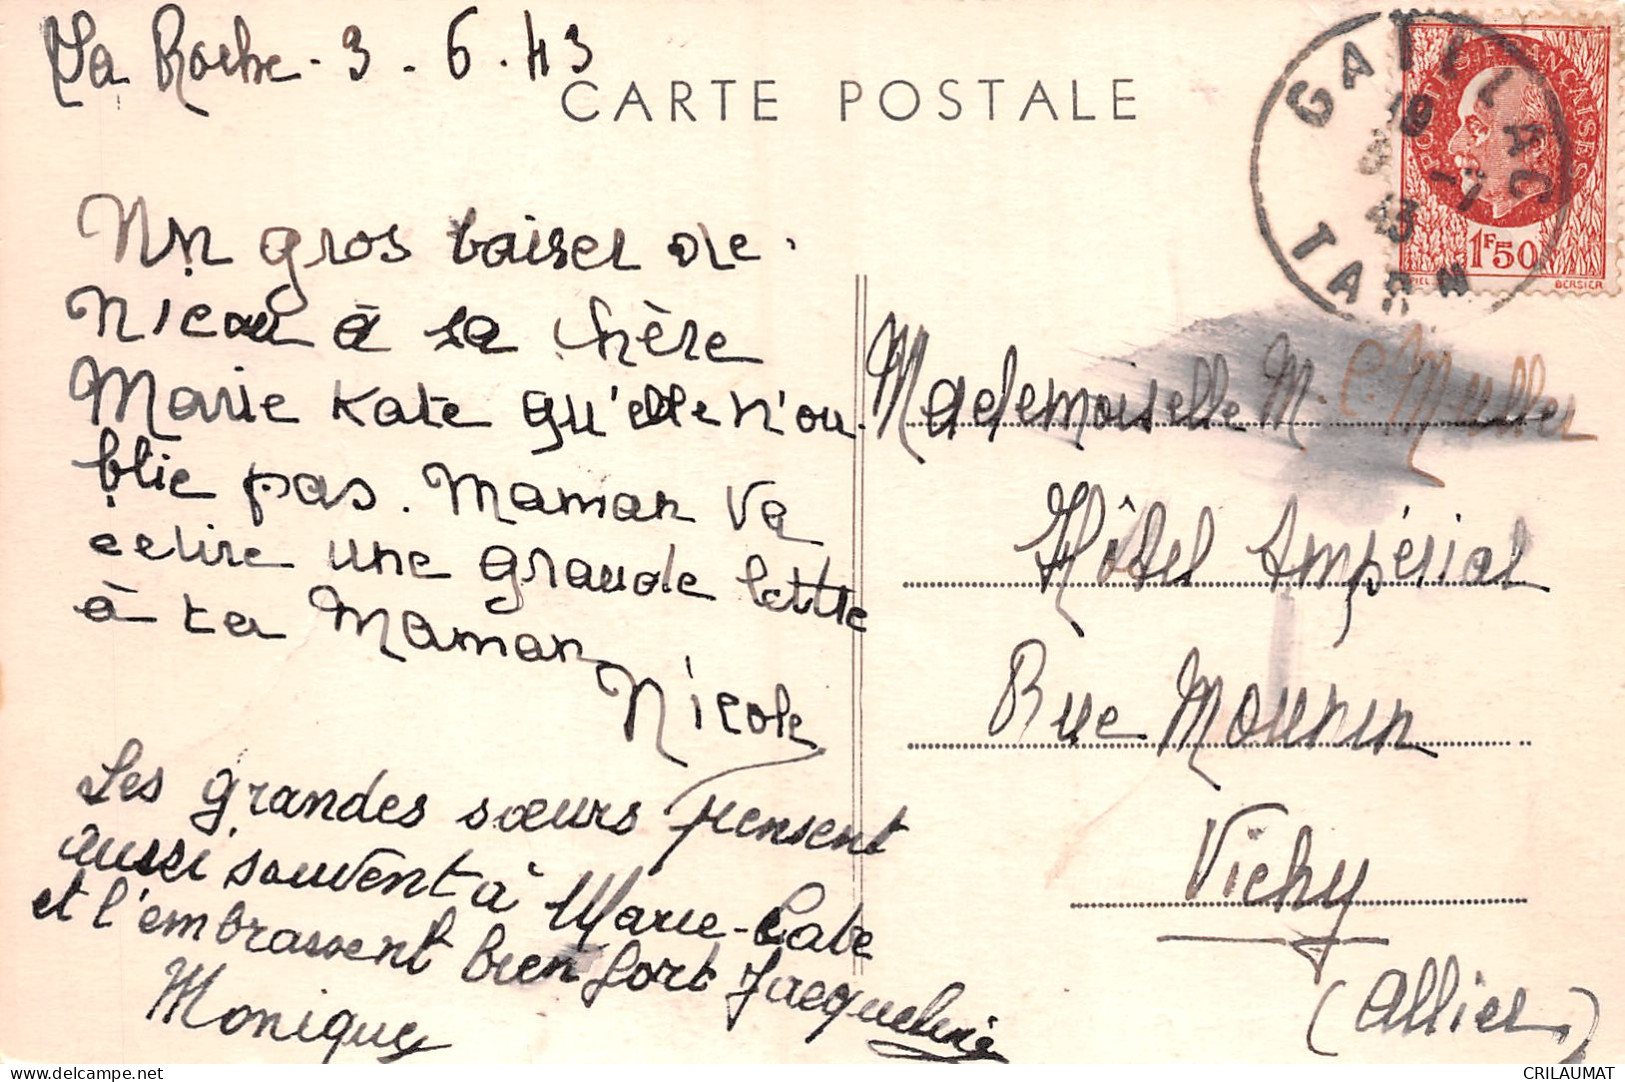 La Roche - 3 - 6 - 43
CARTE POSTALE
Un gros baiser de
Nicou à sa chère
Marie Kate qu'elle n'ou
blie pas. Maman va
ecrire une grande lettre
à ta Maman
Nicole
Les grandes sœurs pensent
aussi souvent à Marie-Cate
et l'embrassent bien fort Jacqueline
Monique
GAILLAC
TARN
43
POSTES FRANÇAISES
1F50
BERSIER
Mademoiselle M. C. Muller
Hôtel Impérial
Rue Mounin
Vichy
(Allier)
CRILAUMAT